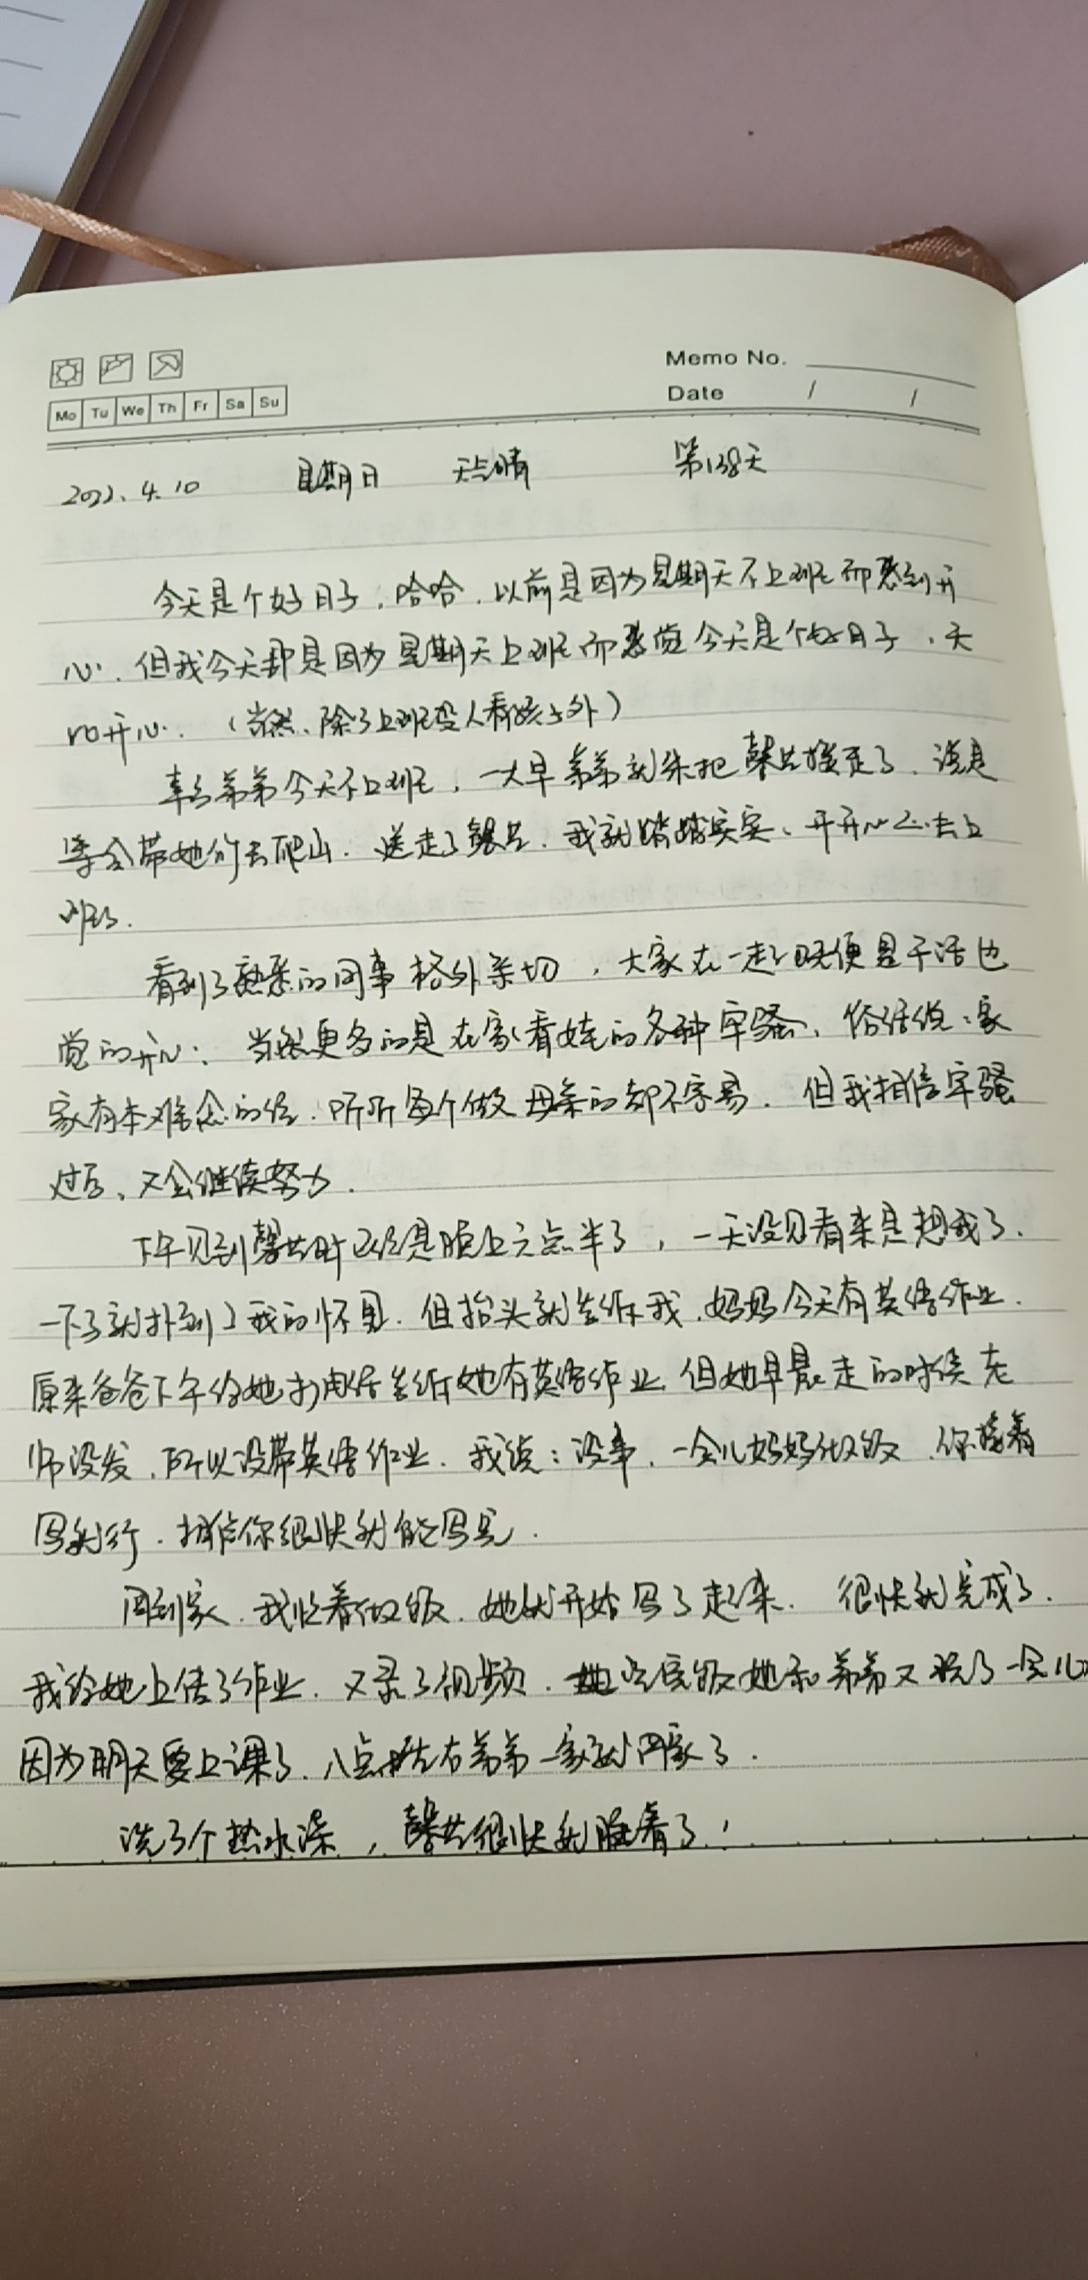 Memo No.
Mo Tu We Th Fr Sa Su
Date / /
2022.4.10 星期日 天气晴 第138天
今天是个好日子,哈哈,以前是因为星期天不上班而感到开
心,但我今天却是因为星期天上班而感觉今天是个好日子,天
的开心.(当然、除了上班没人看孩子外)
幸亏弟弟今天不上班,一大早弟弟就来把馨艺接走了,说是
等会带她们去爬山.送走了馨艺,我就踏踏实实、开开心心去上
班了.
看到了熟悉的同事格外亲切,大家在一起既便是干活也
觉的开心.当然更多的是在家看娃的各种牢骚,俗话说:家
家有本难念的经.听听每个做母亲的都不容易.但我相信牢骚
过后、又会继续努力.
下午见到馨艺时已经是晚上六点半了,一天没见看来是想我了.
一下了就扑到了我的怀里.但抬头就告诉我,妈妈今天有英语作业.
原来爸爸下午给她打电话告诉她有英语作业,但她早晨走的时候老
师没发,所以没带英语作业.我说:没事,一会儿妈妈做饭,你接着
写就行.相信你很快就能写完.
回到家,我忙着做饭,她就开始写了起来.很快就完成了.
我给她上传了作业,又录了视频.吃完饭她和弟弟又玩了一会儿
因为明天要上课了,八点左右弟弟一家就回家了.
洗了个热水澡,馨艺很快就睡着了!